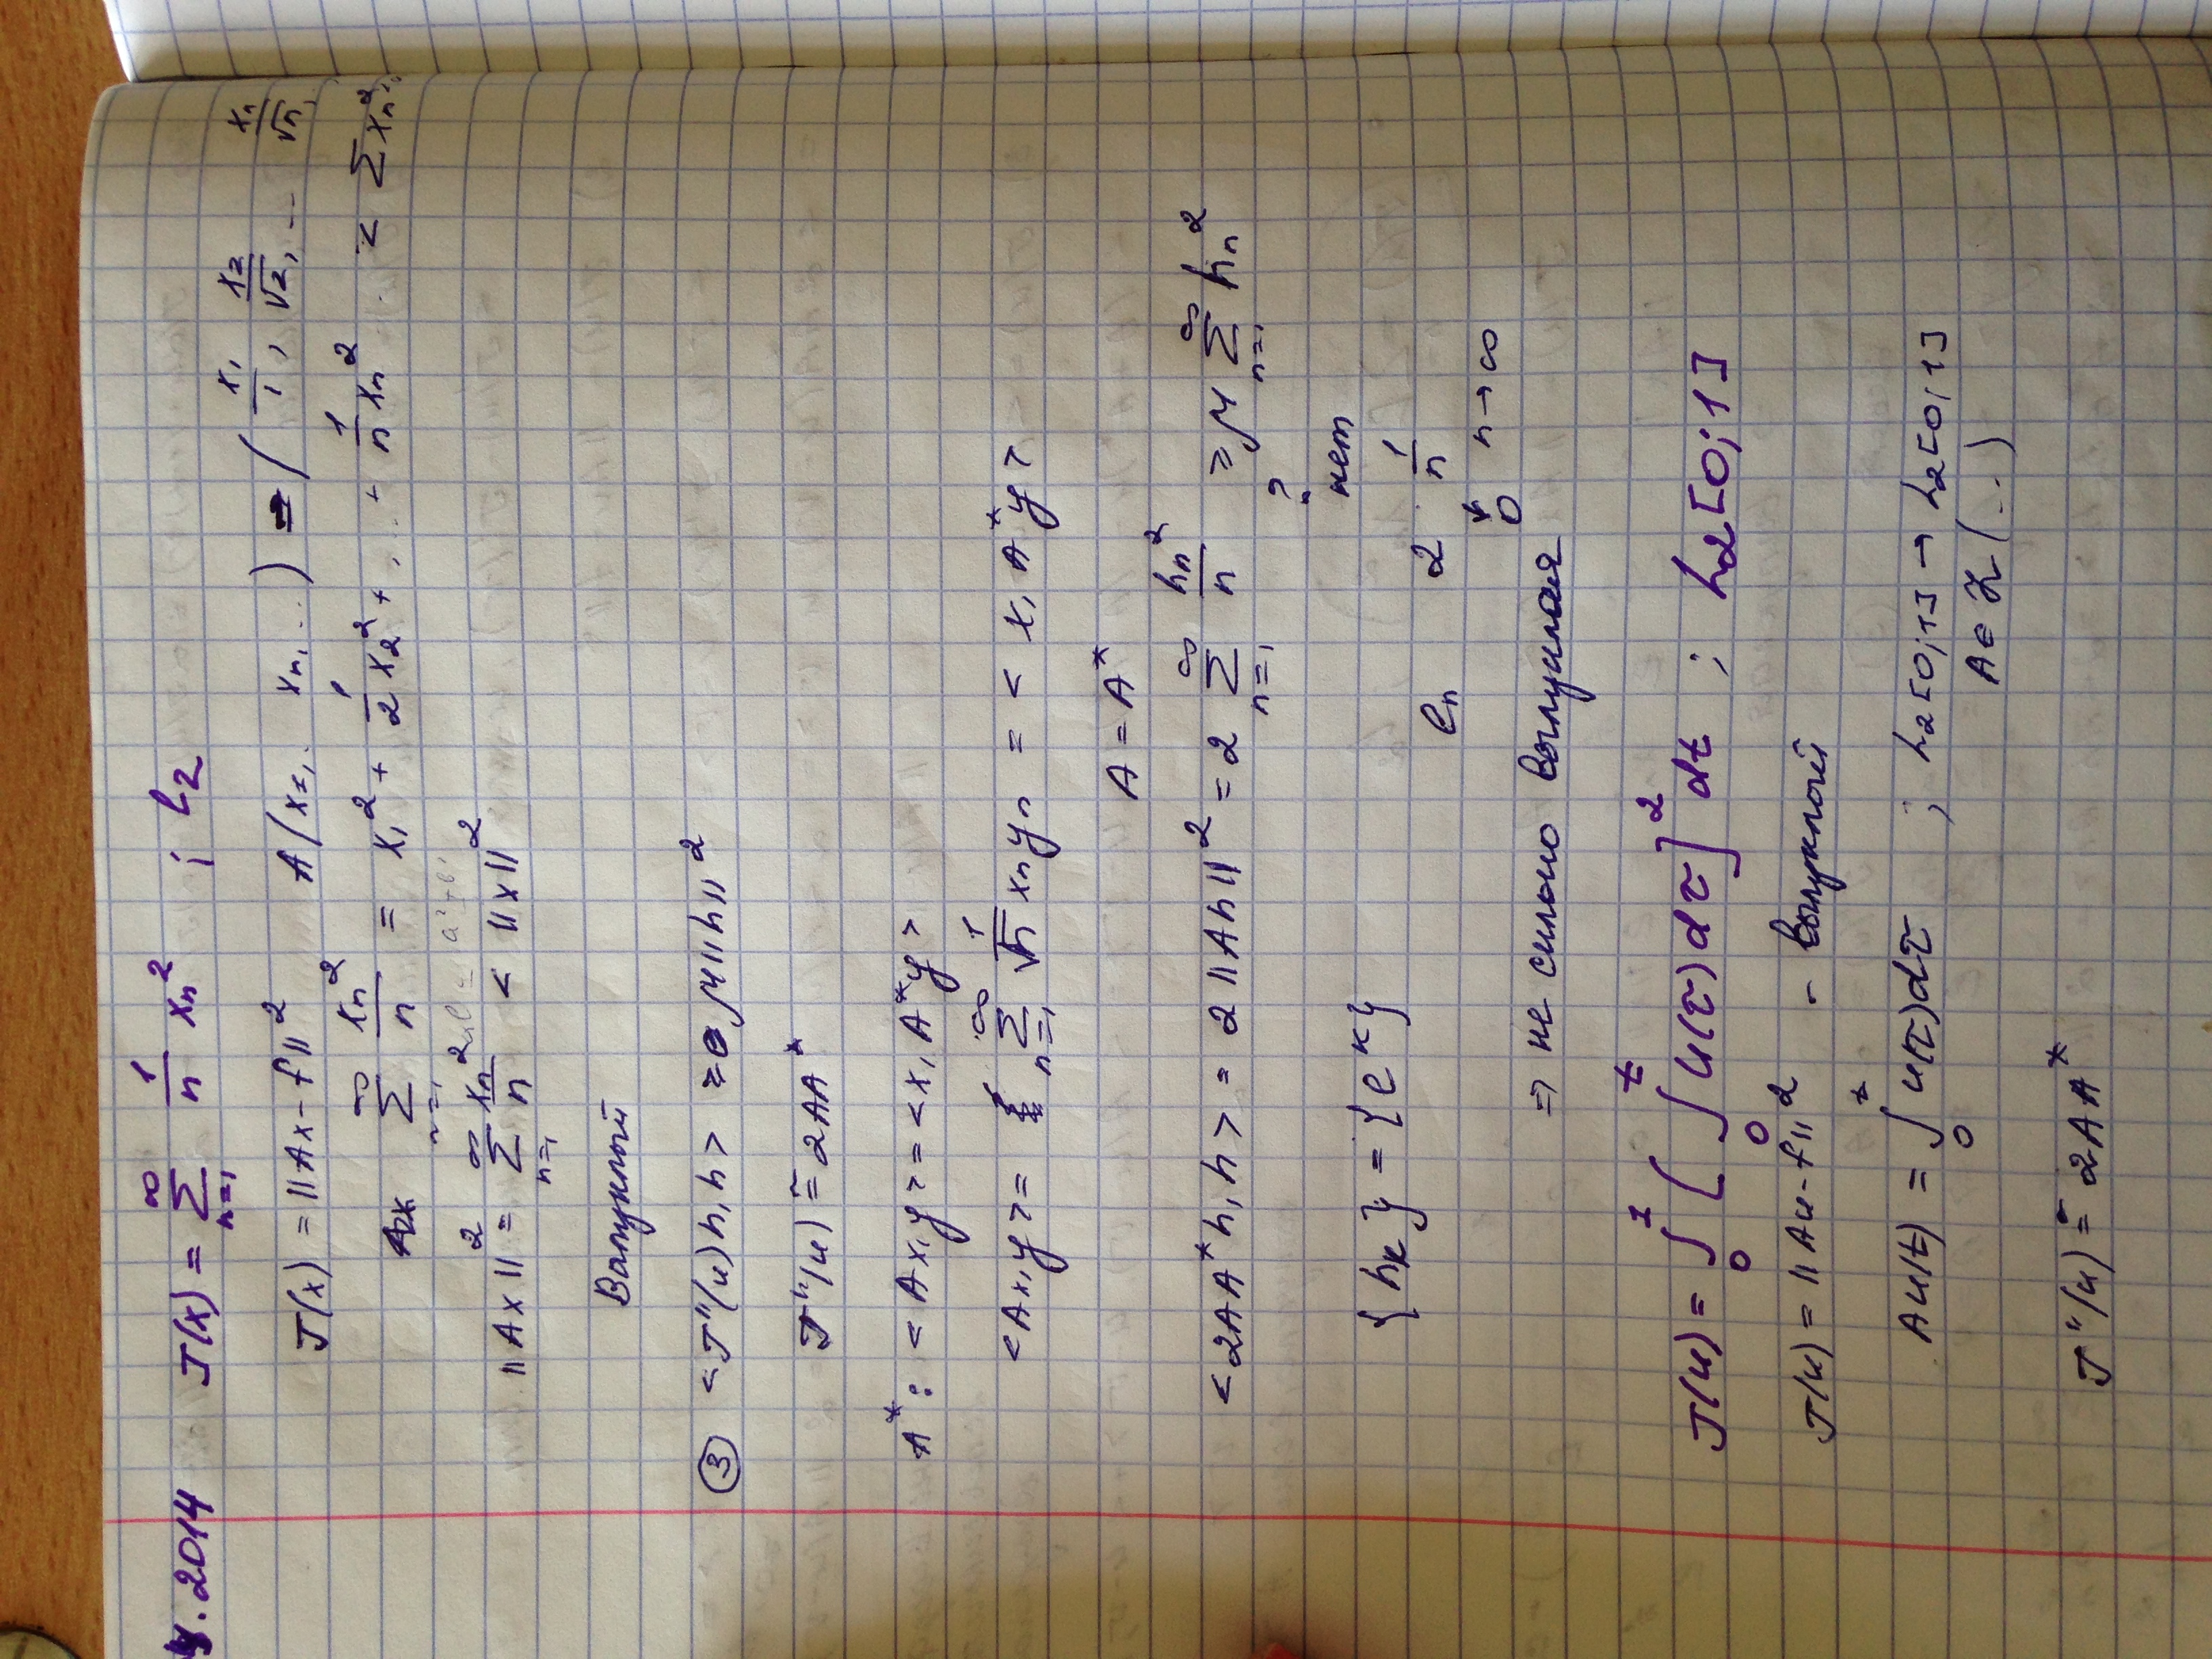 4.2014 J(x) = ∑_{n=1}^{∞} 1/n x_n^2 ; L_2
J(x) = ||Ax - f||^2 A(x_1, .. x_n, ..) = (x_1/1, x_2/√2, ... x_n/√n,
∑_{n=1}^{∞} x_n^2/n = x_1^2 + 1/2 x_2^2 + ... + 1/n x_n^2 < ∑ x_n^2
||Ax||^2 = ∑_{n=1}^{∞} x_n^2/n < ||x||^2
Выпуклый
③ <J''(u)h, h> ≥ μ||h||^2
J''(u) = 2AA*
A*: <Ax, y> = <x, A*y>
<Ax, y> = ∑_{n=1}^{∞} 1/√n x_n y_n = <x, A*y>
A = A*
<2AA*h, h> = 2||Ah||^2 = 2 ∑_{n=1}^{∞} h_n^2/n ≥ μ ∑_{n=1}^{∞} h_n^2
? нет
{h_k} = {e^k} e_n 2 1/n
↓ 0 n→∞
⇒ не сильно выпуклая
J(u) = ∫_0^1 [∫_0^t u(τ)dτ]^2 dt ; L_2[0;1]
J(u) = ||Au - f||^2 - выпуклый
Au(t) = ∫_0^t u(τ)dτ ; L_2[0;1] → L_2[0;1]
A ∈ L(...)
J''(u) = 2AA*